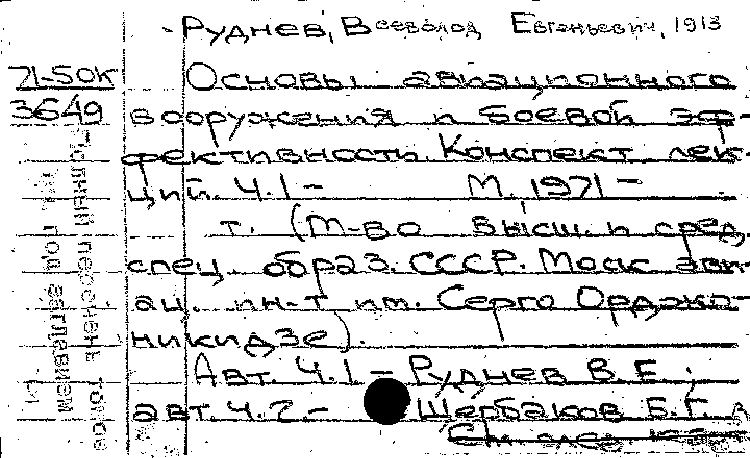 Руднев, Всеволод Евгеньевич, 1913
71-50К Основы авиационного
3649 вооружения и боевой эф-
фективность. Конспект лек-
ций. Ч.1 - М. 1971 -
т. (М-во высш. и сред.
спец. образ. СССР. Моск. ави-
ац. ин-т им. Серго Орджо-
никидзе).
Авт. Ч.1 - Руднев В.Е.;
авт. Ч.2. - Щербаков Б.Г. и
См. след.
Полный перечень томов
под заглавием